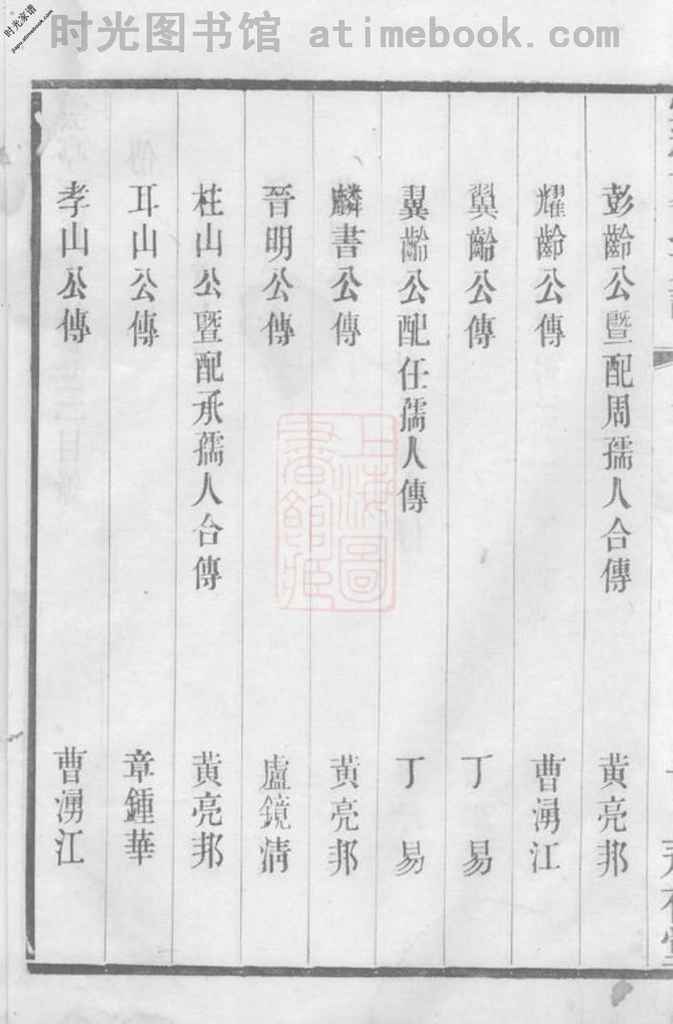 时光图书馆 atimebook.com
时光家谱
彭齡公暨配周孺人合傳 黃亮邦
耀齡公傳 曹湧江
翼齡公傳 丁易
翼齡公配任孺人傳 丁易
麟書公傳 黃亮邦
晉明公傳 盧鏡清
柱山公暨配承孺人合傳 黃亮邦
耳山公傳 章鍾華
孝山公傳 曹湧江
上海圖書館藏